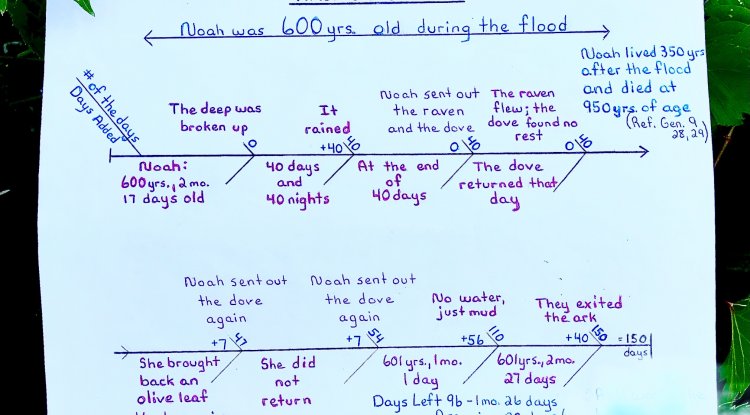 Noah was 600 yrs. old during the flood
Noah lived 350 yrs
after the flood
and died at
950 yrs. of age
(Ref. Gen. 9
28, 29)
# of the days
Days Added
The deep was
broken up
0
It
rained
+40
40
Noah sent out
the raven
and the dove
0
40
The raven
flew; the
dove found no
rest
0
40
Noah:
600 yrs., 2 mo.
17 days old
40 days
and
40 nights
At the end
of
40 days
The dove
returned that
day
Noah sent out
the dove
again
+7
47
Noah sent out
the dove
again
+7
54
No water,
just mud
+56
110
They exited
the ark
+40
150
=150
days
She brought
back an
olive leaf
She did
not
return
601 yrs., 1 mo.
1 day
601 yrs., 2 mo.
27 days
Days Left 96 - 1 mo. 26 days